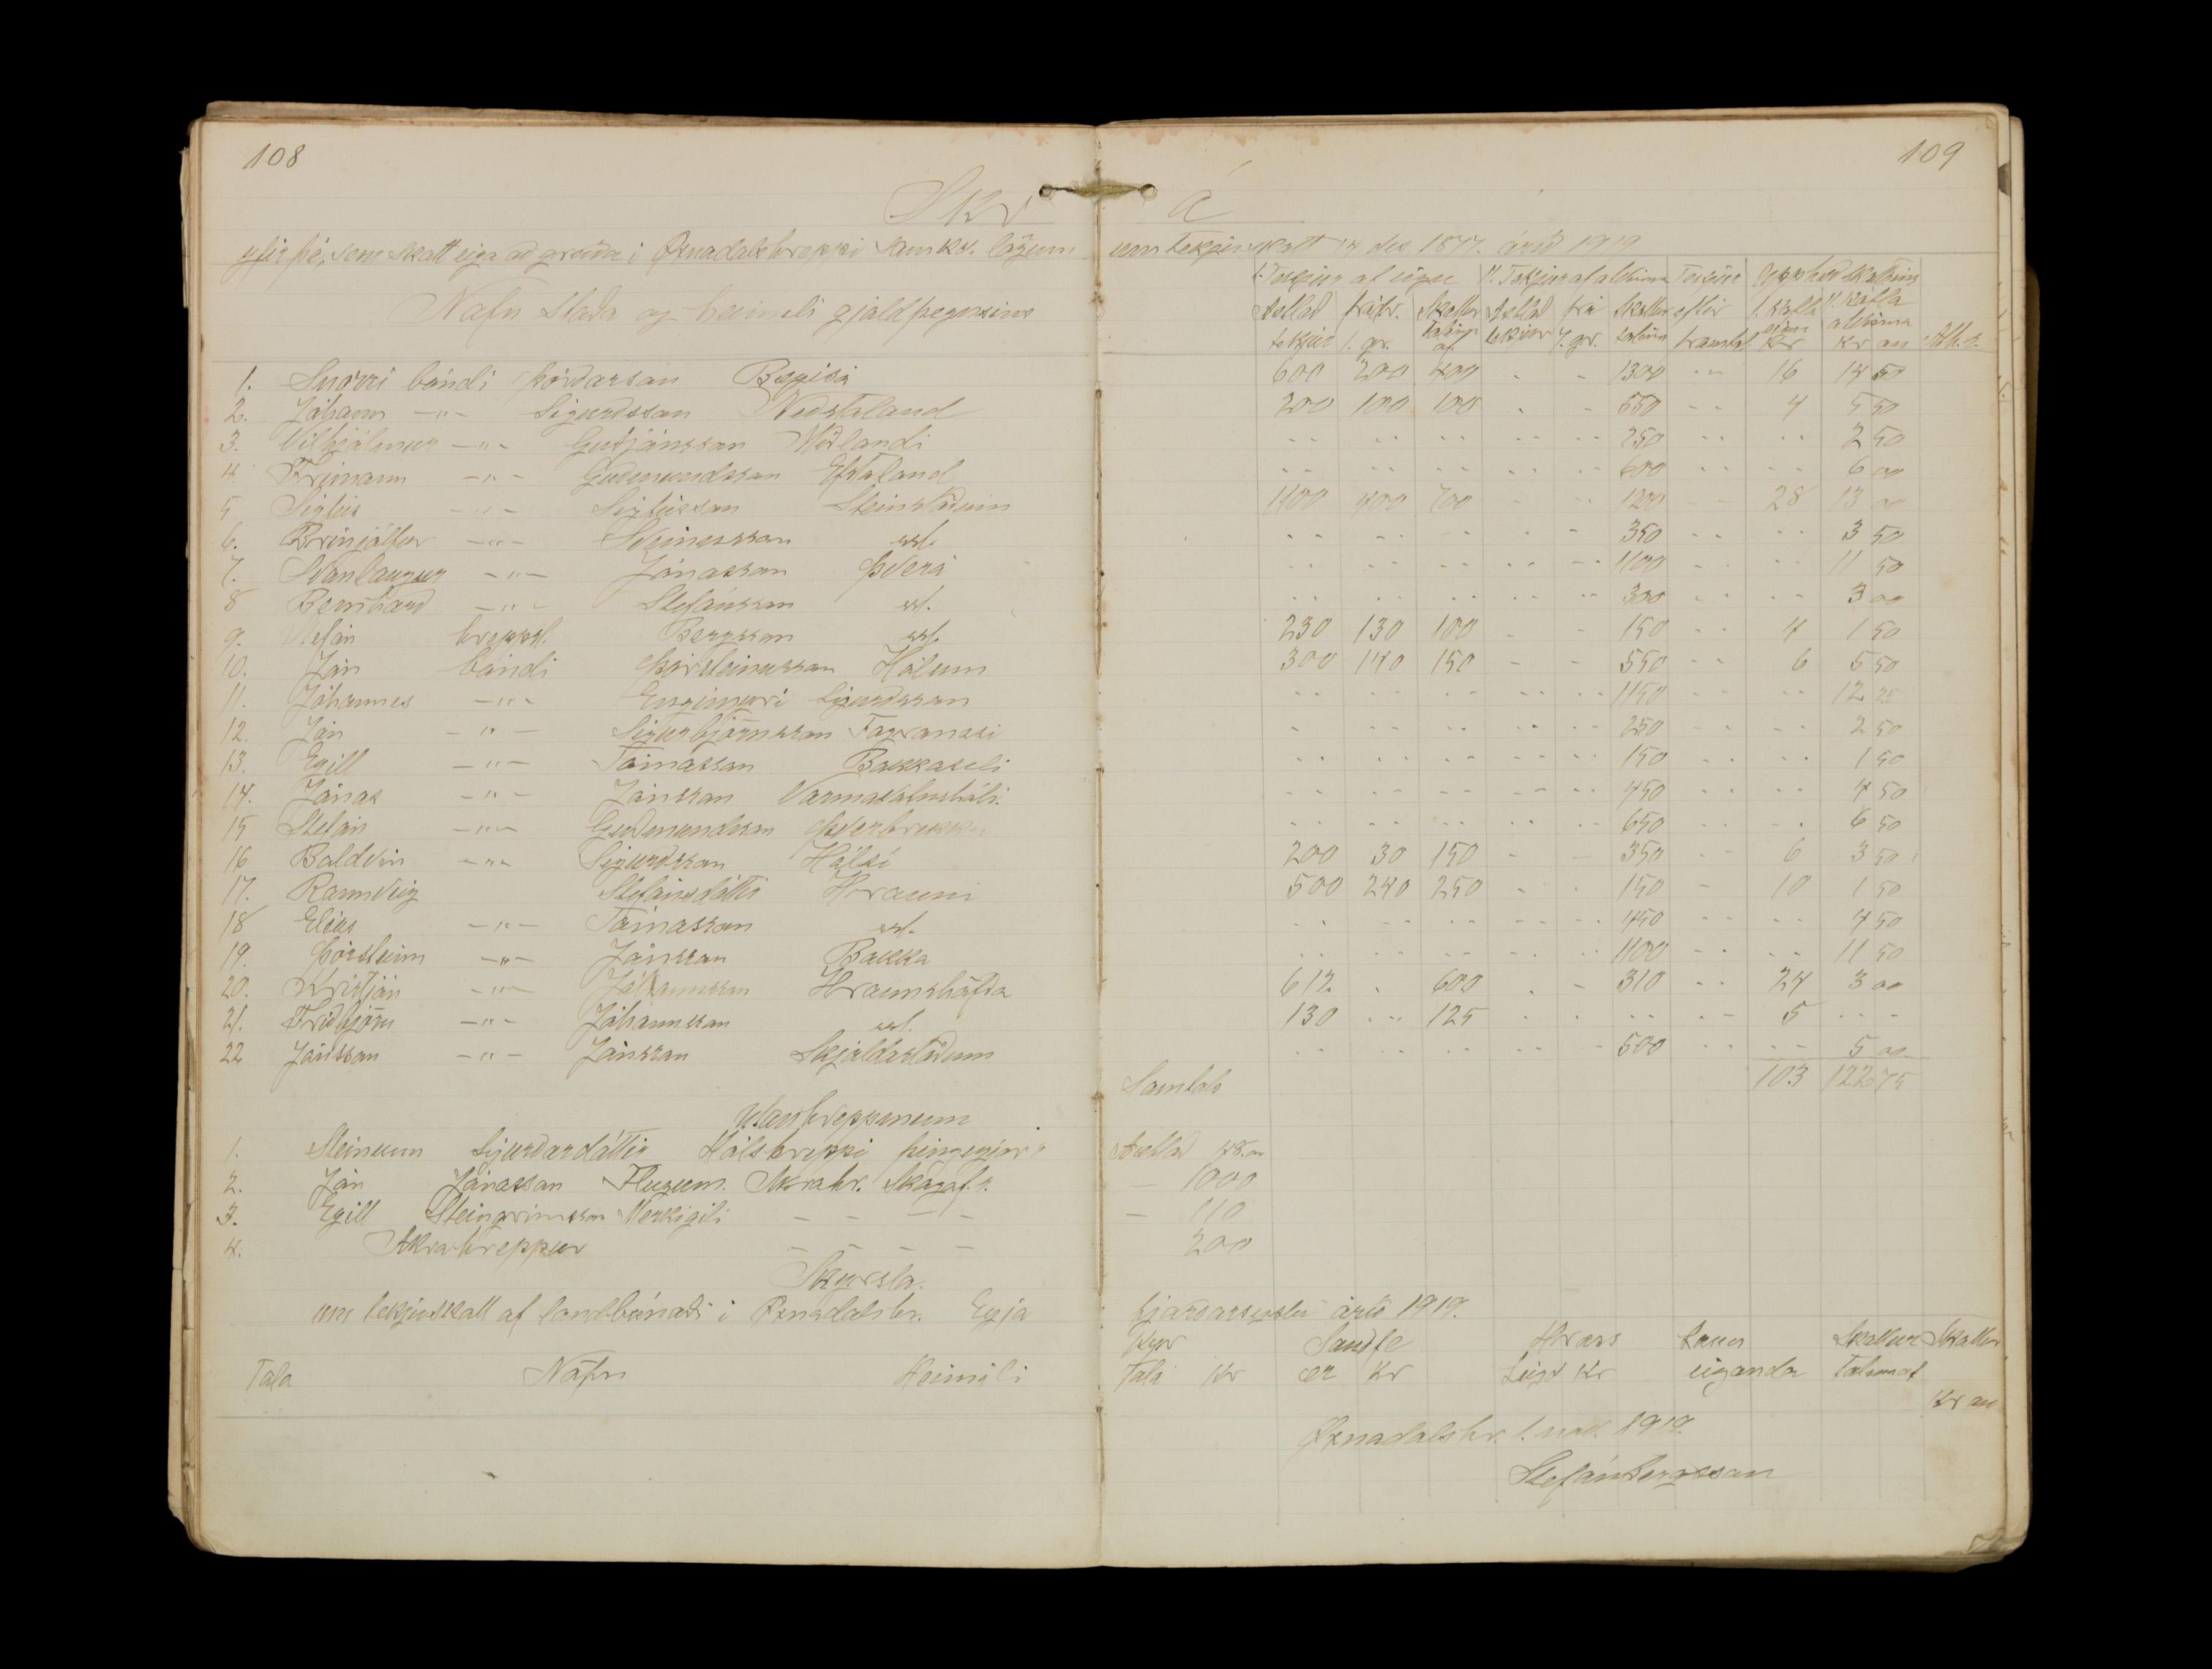 108
109
Skr á
yfir þá, sem skatt eiga að greiða í Öxnadalshreppi samkv. lögum um tekjuskatt 14 des 1877. árið 1919
I. Tekjur af eign II. Tekjur af atvinnu Upphæð skattsins
Nafn staða og heimili gjaldþegnsins
Áætlað frádr. Skattur Áætlað frá Skattur eftir I. kafla II. kafla
tekjur 1. gr. tekjur 7. gr. framtal Kr atvinna Kr au Ath.s.
1. Snorri bóndi Þórðarson Bægisá 600 200 400 - - 1300 - - 16 14 50
2. Jóhann -"- Sigurðsson Neðstaland 200 100 100 - - 550 - - 4 5 50
3. Vilhjálmur -"- Guðjónsson Mið­landi 250 2 50
4. Frímann -"- Guðmundsson Efstaland 600 6 00
5 Sigfús -"- Sigfússon Steinstöðum 1100 400 700 - - 1200 - - 28 13 00
6. Brinjólfur -"- Sveinsson sst. 350 3 50
7. Svanlaugur -"- Jónasson Þverá 1100 11 50
8 Bernharð -"- Stefánsson sst. 300 3 00
9. Stefán hreppst. Bergsson sst. 230 130 100 - - 150 - - 4 1 50
10. Jón bóndi Þorsteinsson Hólum 300 140 150 - - 550 - - 6 5 50
11. Jóhannes -"- Engimýri Sigurðsson 1150 12 25
12. Jón -"- Sigurbjörnsson Fagranesi 250 2 50
13. Egill -"- Tómasson Bakkaseli 150 1 50
14. Jónas -"- Jónsson Varmavatnshóli. 450 4 50
15 Stefán -"- Guðmundsson Þverbrekku 650 6 50
16 Baldvin -"- Sigurðsson Hálsi 200 30 150 - - 350 - - 6 3 50
17. Rannveig Stefánsdóttir Hrauni 500 240 250 - - 150 - 10 1 50
18 Elías -"- Tómasson sst. 450 4 50
19. Þorsteinn -"- Jónsson Bakka 1100 11 50
20. Kristján -"- Jóhannsson Hraunshöfða 612 . 600 . - 310 - - 24 3 00
21. Friðbjörn -"- Jóhannsson sst. 130 - - 125 5 - - -
22 Jónsson -"- Jónsson Skjaldastöðum 500 5 00
Samtals 103 122 75
Utanhreppsmenn
1. Steinunn Sigurðardóttir Hálshreppi Þingeyjars Áætlað
2. Jón Jónasson Flugum. Akrahr. Skagaf.s. — 1000
3. Egill Steingrímsson Merkigili — — — — — 110
4. Akrahreppur — — — — 200
Skýrsla.
um tekjuskatt af landbúnaði í Öxnadalshr. Eyjafjarðarsýslu árið 1919.
Kýr Sauðfé Hross Skattur Skattur
Tala Nafn Heimili Tala Kr Kr Kr eiganda
Kr au
Öxnadalshr. 1. nóv. 1919.
Stefán Bergsson